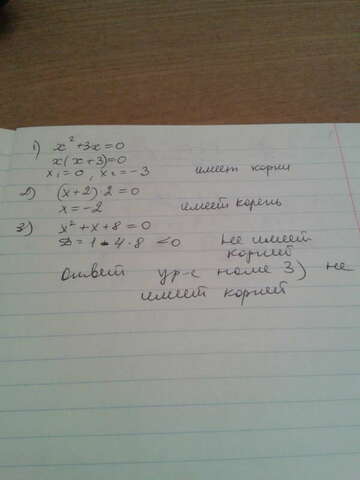 1) x² + 3x = 0
x(x+3)=0
x₁=0, x₂=-3 имеет корни
2) (x+2) 2 = 0
x = -2 имеет корень
3) x² + x + 8 = 0
D = 1 - 4·8 < 0 не имеет
корней
Ответ ур-е номе 3) не
имеет корней